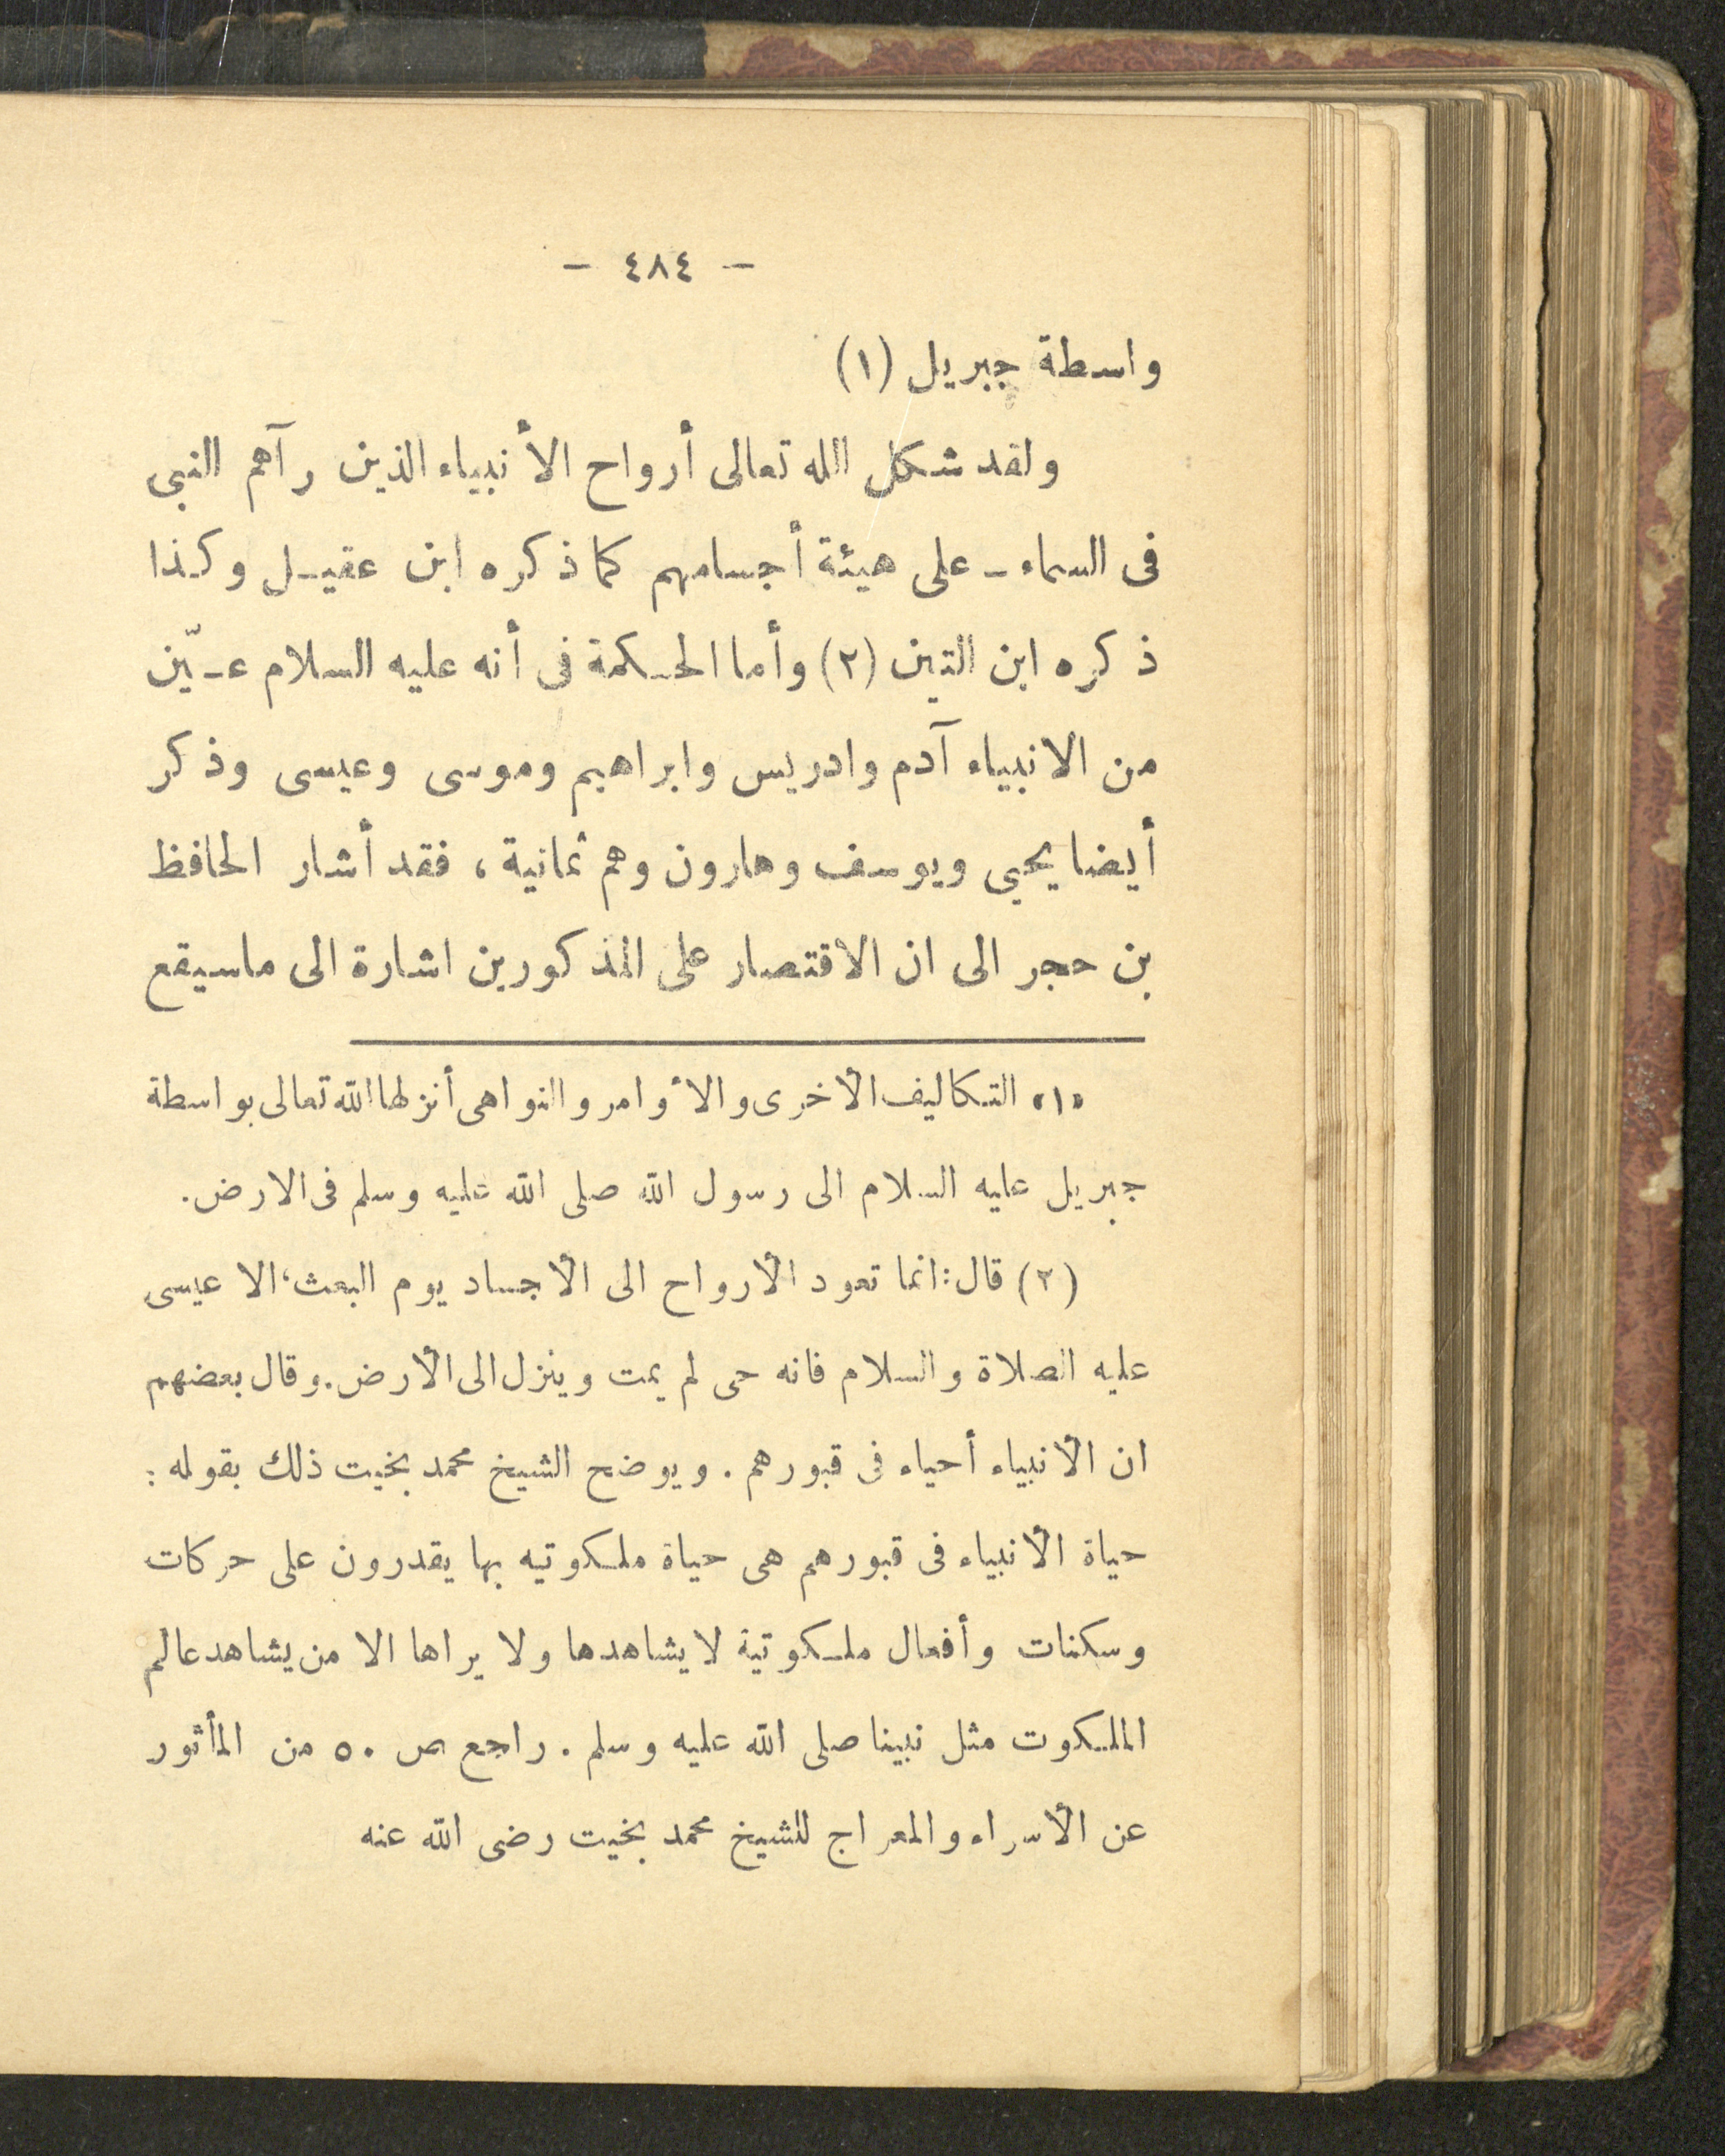 - ٤٨٤ -
واسطة جبريل (١)
ولقد شكل الله تعالى أرواح الأنبياء الذين رآهم النبى
فى السماء - على هيئة أجسامهم كما ذكره ابن عقيـل وكـذا
ذكره ابن التين (٢) وأما الحـكمة فى أنه عليه السلام عـيّن
من الانبياء آدم وادريس وابراهيم وموسى وعيسى وذكر
أيضا يحيى ويوسف وهارون وهم ثمانية ، فقد أشار الحافظ
بن حجر الى ان الاقتصار على المذكورين اشارة الى ماسيقع
«١» التكاليف الأخرى والأوامر والنواهى أنزلها الله تعالى بواسطة
جبريل عليه السلام الى رسول الله صلى الله عليه وسلم فى الارض .
(٢) قال : انما تعود الأرواح الى الأجساد يوم البعث ، الا عيسى
عليه الصلاة والسلام فانه حى لم يمت وينزل الى الأرض . وقال بعضهم
ان الأنبياء أحياء فى قبورهم . ويوضح الشيخ محمد بخيت ذلك بقوله :
حياة الأنبياء فى قبورهم هى حياة ملـكوتيه بها يقدرون على حركات
وسكنات وأفعال ملـكوتية لا يشاهدها ولا يراها الا من يشاهد عالم
الملـكوت مثل نبينا صلى الله عليه وسلم . راجع ص ٥٠ من المأثور
عن الأسراء والمعراج للشيخ محمد بخيت رضى الله عنه